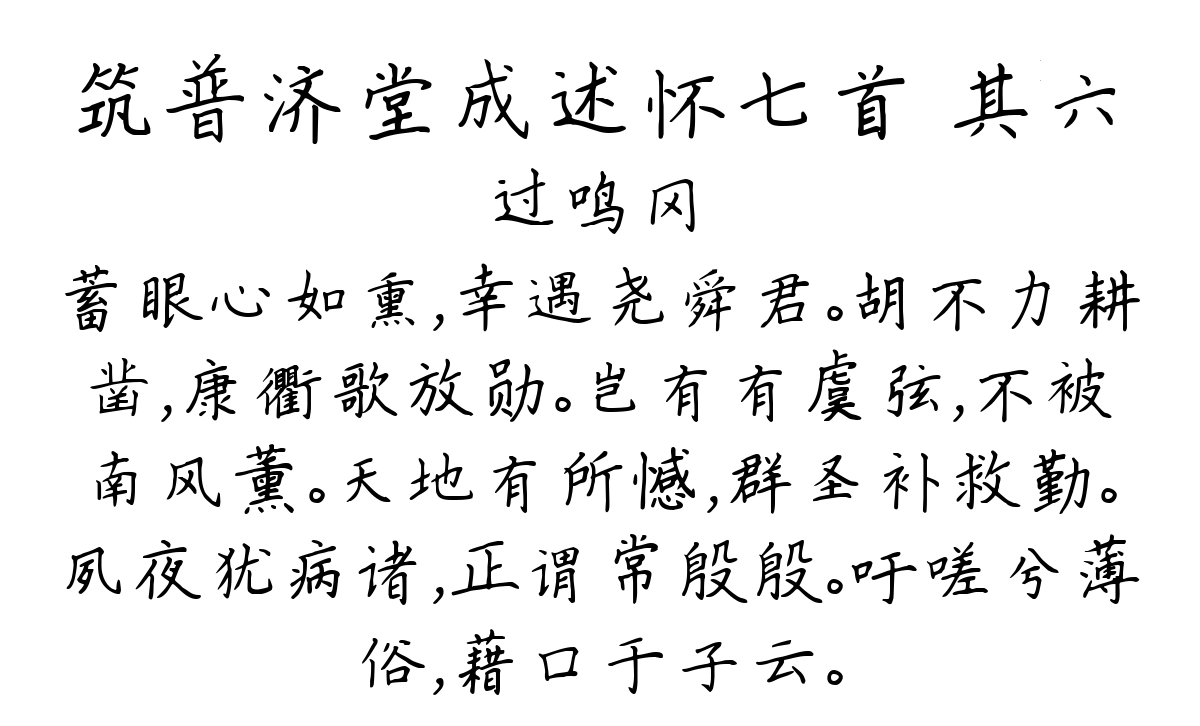 筑普济堂成述怀七首 其六
过鸣冈
蓄眼心如熏,幸遇尧舜君。胡不力耕
凿,康衢歌放勋。岂有有虞弦,不被
南风薰。天地有所憾,群圣补救勤。
夙夜犹病诸,正谓常殷殷。吁嗟兮薄
俗,藉口于子云。